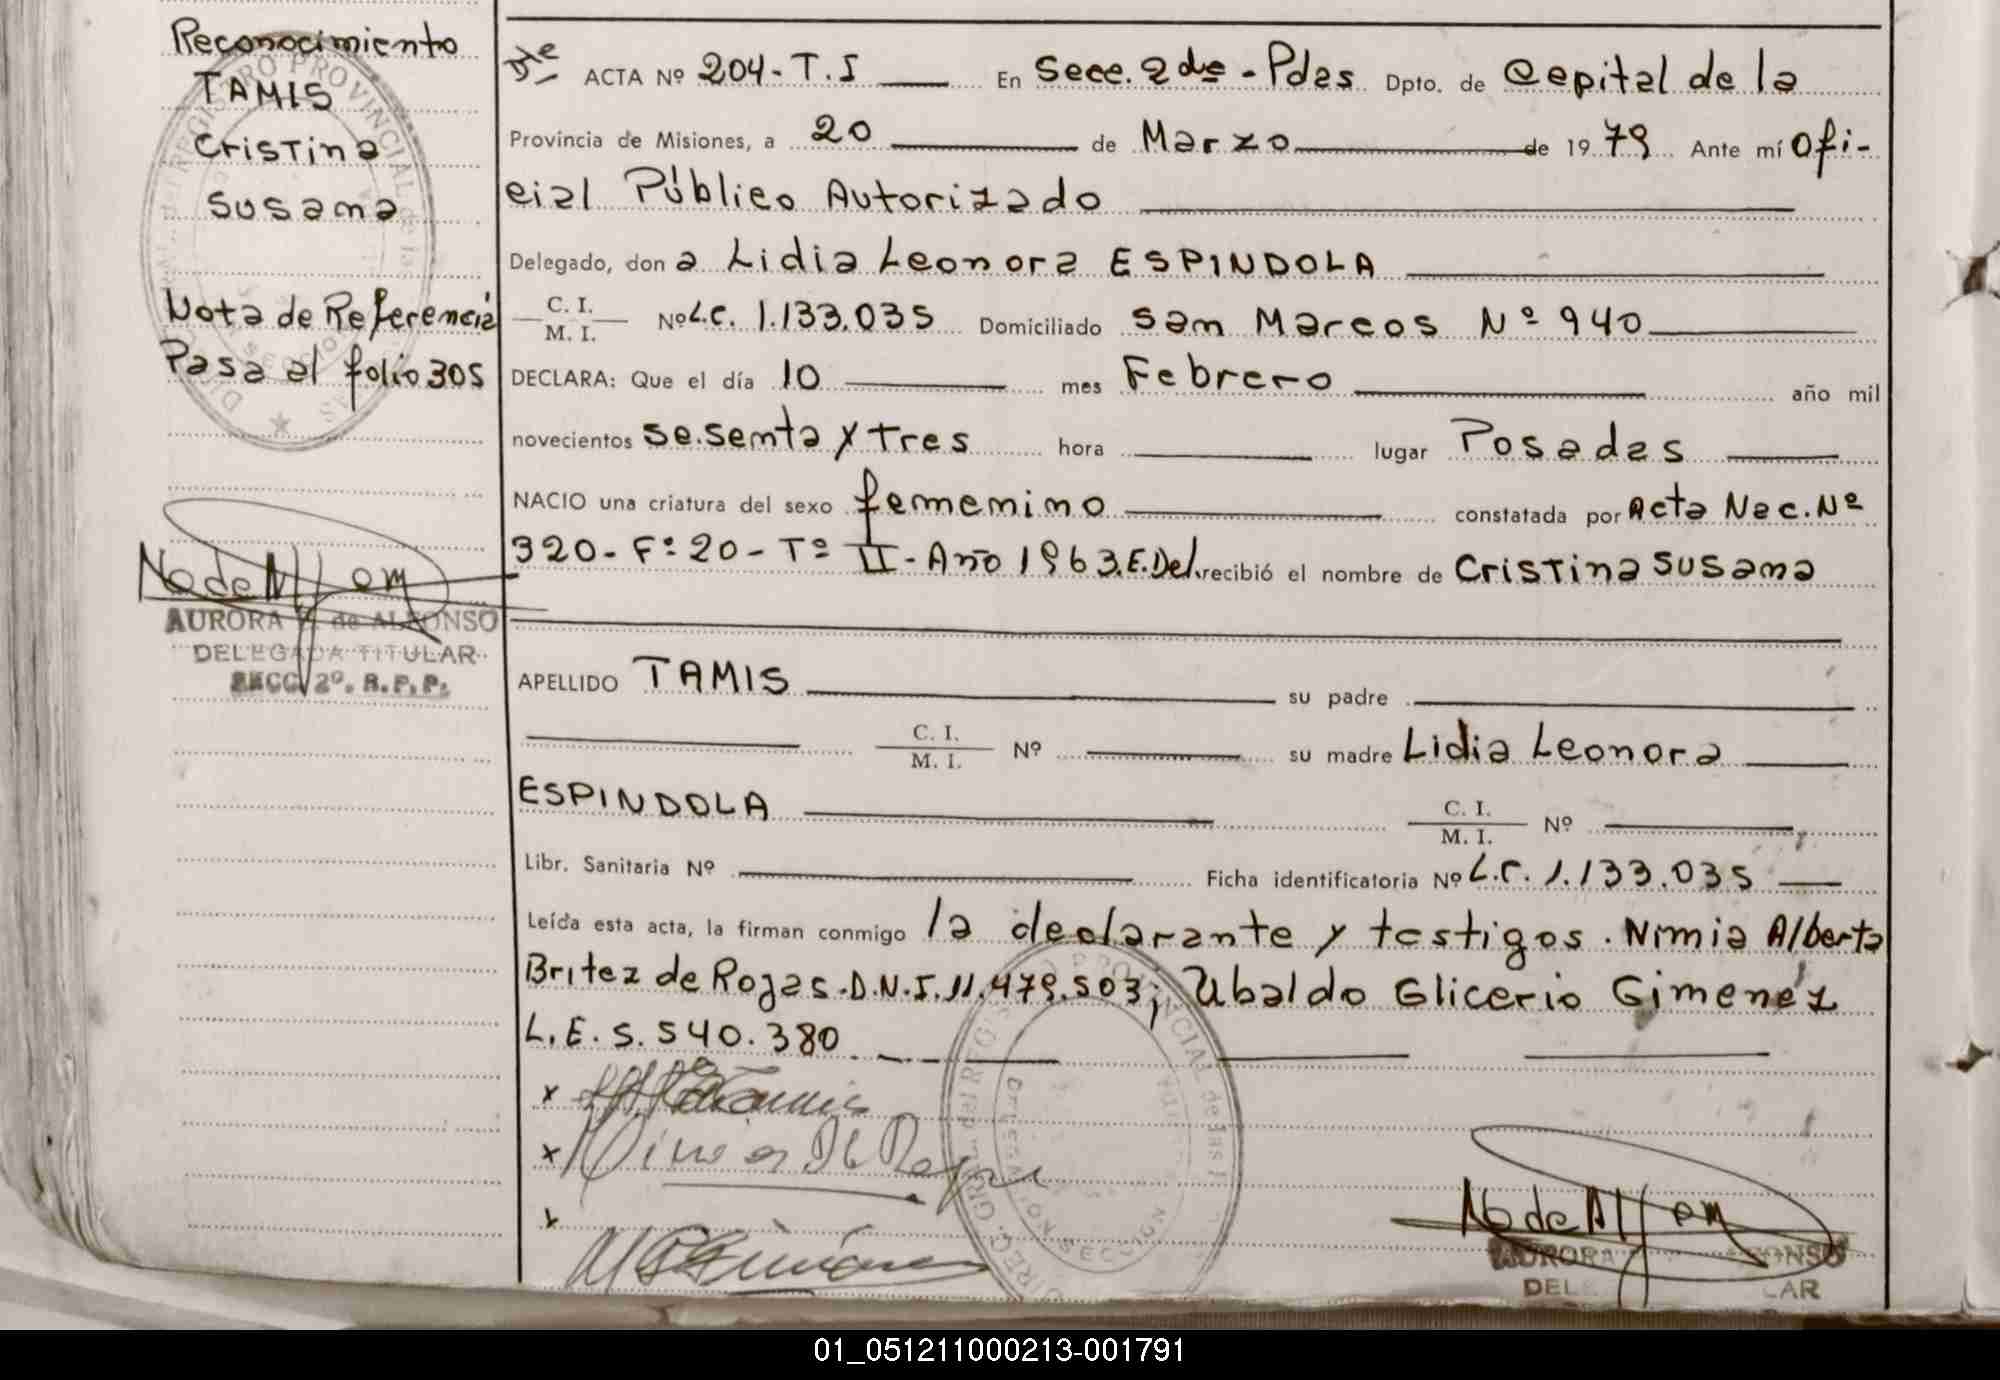 Reconocimiento
TAMIS
Cristina
Susana
Nota de Referencia
Pasa al folio 305
AURORA de ALFONSO
DELEGADA TITULAR
SECC. 2º. R. P. P.
ACTA Nº 204 - T. I En Secc. 2da - Pdas Dpto. de Capital de la
Provincia de Misiones, a 20 de Marzo de 1979 Ante mí Ofi-
cial Público Autorizado
Delegado, don a Lidia Leonora ESPINDOLA
C. I. / M. I. Nº L.C. 1.133.035 Domiciliado San Marcos Nº 940
DECLARA: Que el día 10 mes Febrero año mil
novecientos Sesenta y Tres hora lugar Posadas
NACIO una criatura del sexo femenino constatada por Acta Nac. Nº
320 - Fº 20 - Tº II - Año 1963. E. Del. recibió el nombre de Cristina Susana
APELLIDO TAMIS su padre
C. I. / M. I. Nº su madre Lidia Leonora
ESPINDOLA C. I. / M. I. Nº
Libr. Sanitaria Nº Ficha identificatoria Nº L.C. 1.133.035
Leída esta acta, la firman conmigo la declarante y testigos. Nimia Alberta
Britez de Rojas. D.N.I. 11.479.503; Ubaldo Glicerio Gimenéz
L. E. 5.540.380
AURORA ALFONSO
01_051211000213-001791